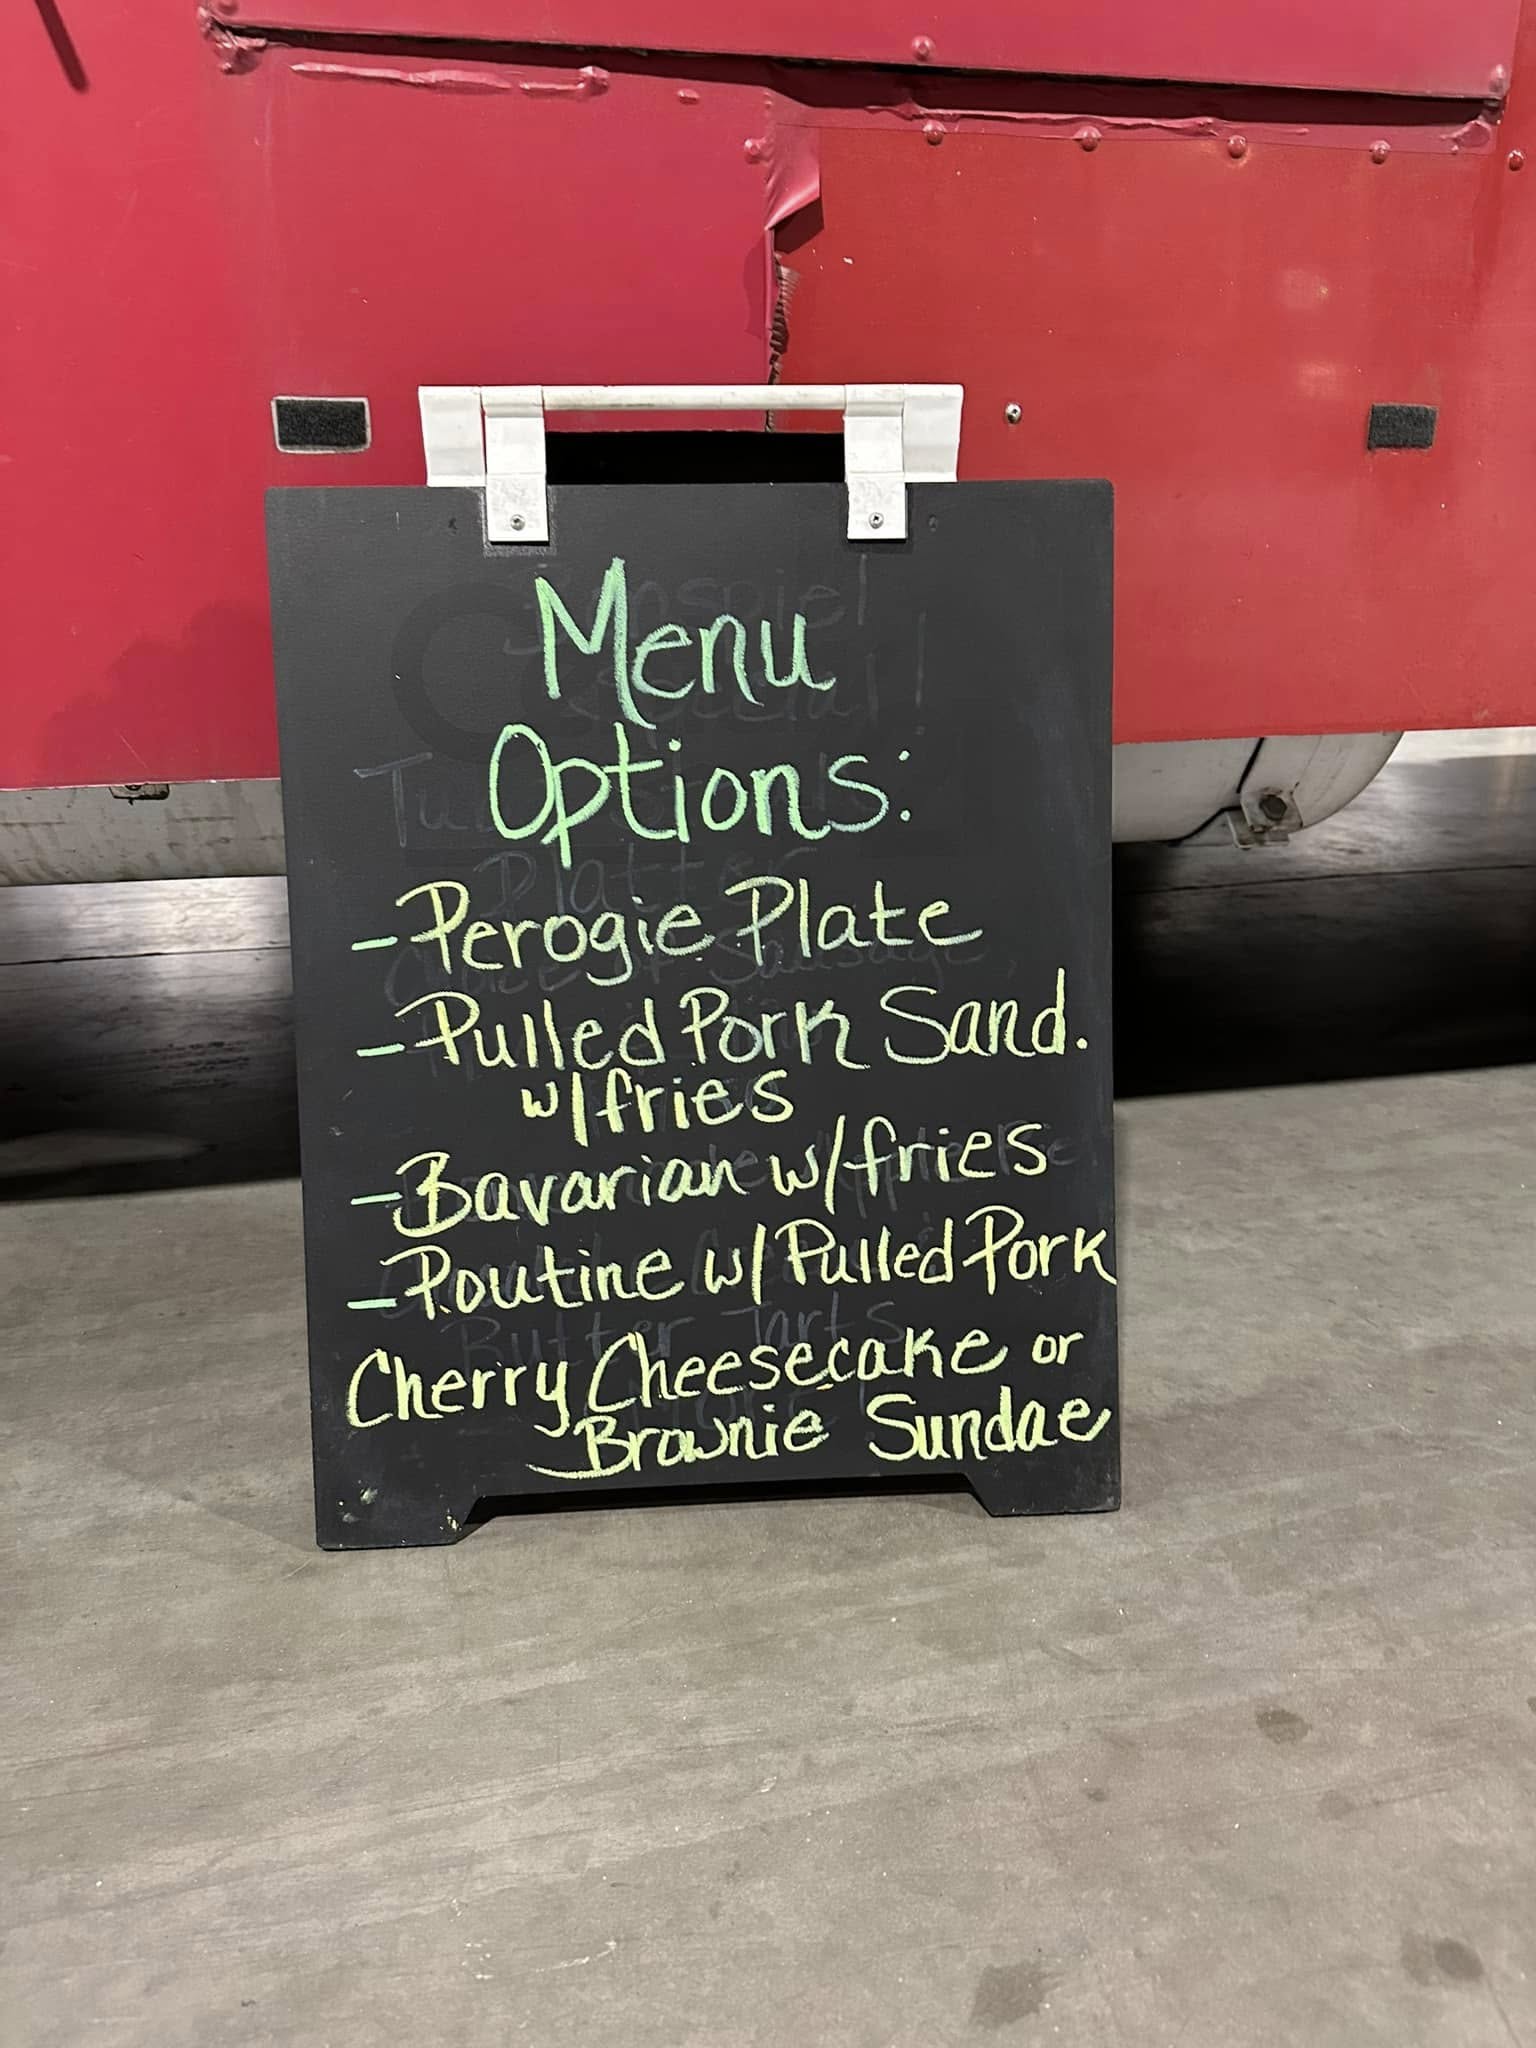 Menu
Options:
- Perogie Plate
- Pulled Pork Sand.
w/fries
- Bavarian w/fries
- Poutine w/ Pulled Pork
Cherry Cheesecake or
Brownie Sundae